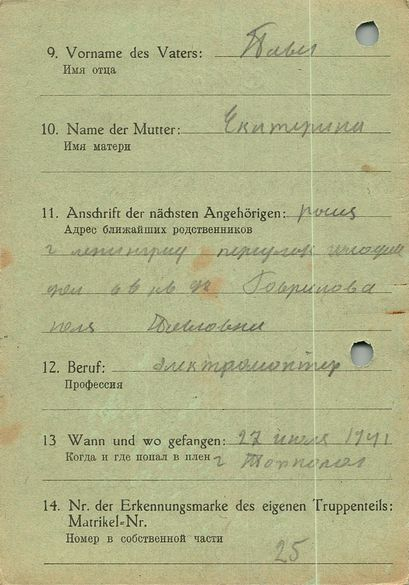 9. Vorname des Vaters: Павел
Имя отца
10. Name der Mutter: Екатерина
Имя матери
11. Anschrift der nächsten Angehörigen:
Адрес ближайших родственников
г ленинград переулок
Гаврилова
Павловна
12. Beruf: электромонтер
Профессия
13 Wann und wo gefangen: 27 июля 1941
Когда и где попал в плен г
14. Nr. der Erkennungsmarke des eigenen Truppenteils:
Matrikel-Nr.
Номер в собственной части
25